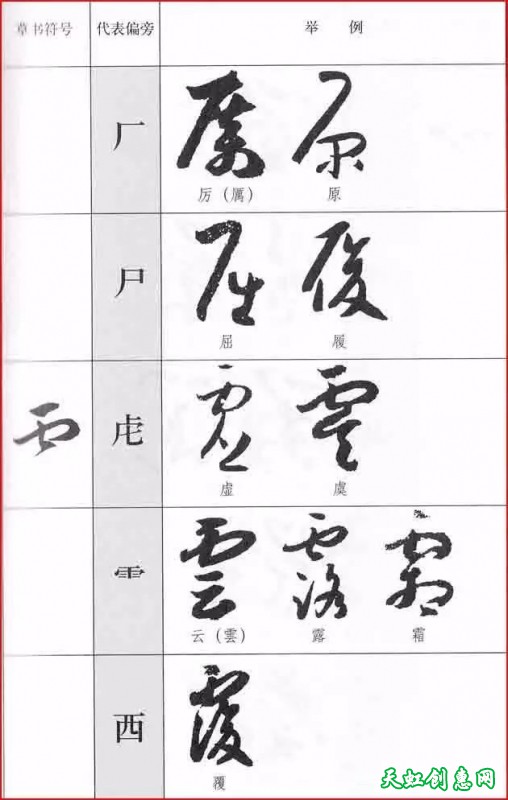 草书符号 代表偏旁 举例
厂
厉（厲） 原
尸
屈 履
虍
虚 虞
⻗
云（雲） 露 霜
西
覆
天虹创意网